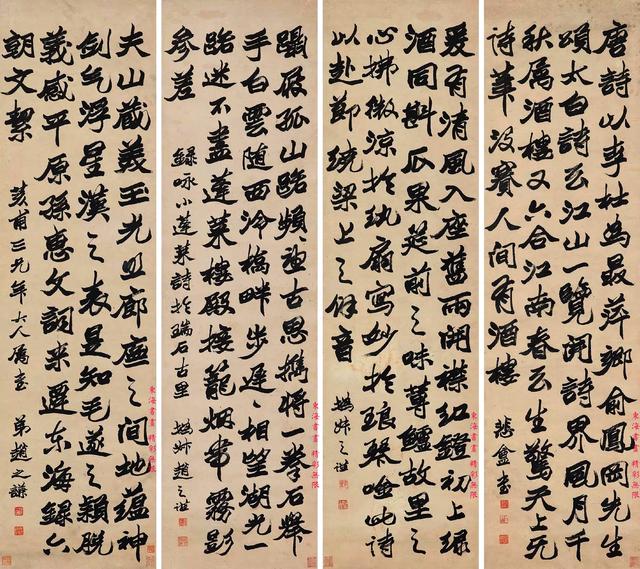 唐詩以李杜為最萍鄉俞鳳岡先生
頌太白詩云江山一覽開詩界風月千
秋屬酒樓又六合江南春云生驚天上死
詩筆沒賓人間有酒樓
悲盦書
東海書畫 精彩無限
爰有清風入座藍雨開襟紅鐙初上綠
酒同斟瓜果筵前之味蓴鱸故里之
心拂微涼於紈扇寫妙於琅琴唫此詩
以赴節繞梁上之餘音
撝叔之谦
東海書畫 精彩無限
躡屐孤山路頻迴古思攜將一拳石舉
手白雲随西泠橋畔步遲遲相望湖光一
路迷不盡蓬萊樓殿接籠烟罩霧影
參差
錄咏小蓬萊詩於瑞石古里
撝叔趙之谦
東海書畫 精彩無限
夫山藏美玉光照廊廡之間地蘊神
劍气浮星漢之表是知毛遂之穎脫
義感平原孫惠文詞来遷東海錄六
朝文絜
荄甫三兄年大人屬書
弟趙之謙
東海書畫 精彩無限